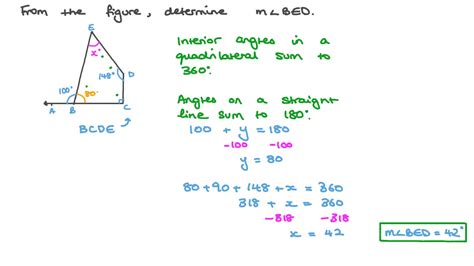 From the figure, determine m∠BED.
E
x°
148°
D
100°
80°
A
B
C
BCDE
Interior angles in a
quadrilateral sum to
360°.
Angles on a straight
line sum to 180°.
100 + y = 180
-100 -100
y = 80
80 + 90 + 148 + x = 360
318 + x = 360
-318 -318
x = 42
m∠BED = 42°